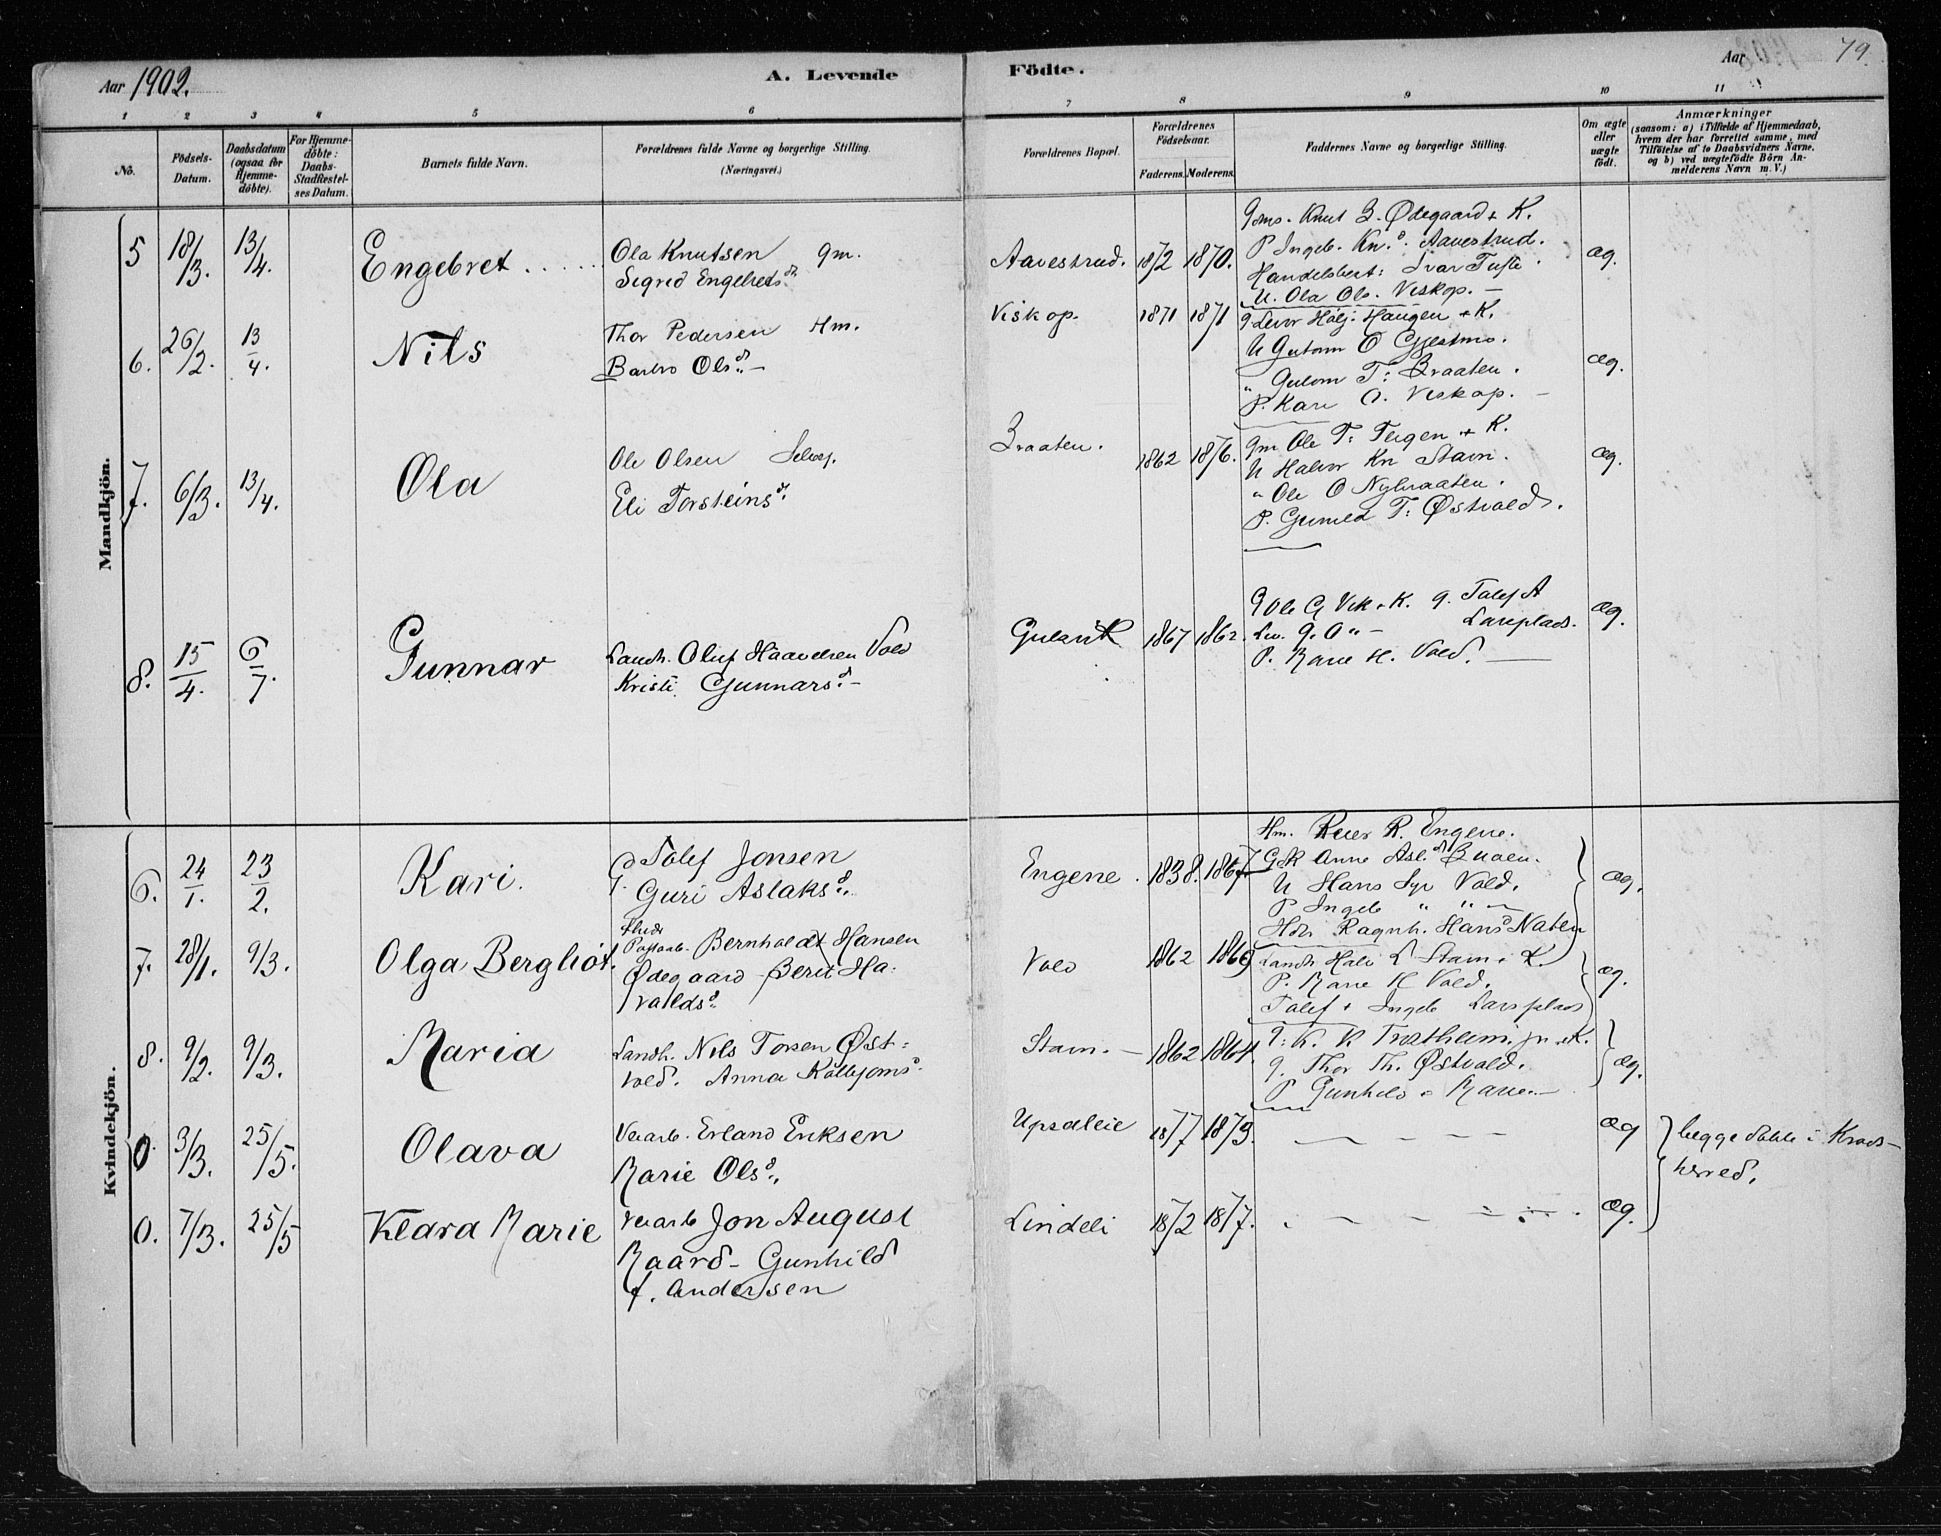 Aar 1902.
A. Levende
Födte.
Aar
79.
1 2 3 4 5 6 7 8 9 10 11
No.
Födsels-
Datum.
Daabsdatum
(ogsaa for
Hjemme-
döbte).
For Hjemme-
döbte:
Daabs-
Stadfæstel-
ses Datum.
Barnets fulde Navn.
Forældrenes fulde Navne og borgerlige Stilling.
(Næringsvei.)
Forældrenes Bopæl.
Forældrenes
Födselsaar.
Faderens. Moderens.
Faddernes Navne og borgerlige Stilling.
Om ægte
eller
uægte
födt.
Anmærkninger
(saasom: a) i Tilfælde af Hjemmedaab,
hvem der har forrettet samme, med
Tilföielse af to Daabsvidners Navne,
og b) ved uægtefödte Börn An-
melderens Navn m. V.)
Mandkjön.
5 18/3. 13/4. Engebret
Ola Knutsen gm.
Sigrid Engebrets d.
Aavestrud. 1872 1870.
Gms. Knut B. Ødegaard + K.
P. Ingeb. Kn. d. Aavestrud.
Handelsbest: Ivar Tufte.
U. Ola Ols. Viskop. —
æg.
6. 26/2. 13/4. Nils
Thor Pedersen Hm.
Barbro Ols d. —
Viskop. 1871 1871
g Levor Halj. Haugen + K.
U Gutorm O Gjestmo.
" Gulom T: Braaten.
P. Kari O. Viskop. —
æg.
7. 6/3. 13/4. Ola
Ole Olsen Selvej.
Eli Torsteins d.
Braaten. 1862 1876.
gm Ole T: Teigen + K.
U Halvor Kn Stavn.
" Ole O Nybraaten.
P. Gunild T: Østvold.
æg.
8. 15/4. 6/7. Gunnar
Landh. Oluf Haavelsen Vold
Kristi Gunnars d. —
Gulsvik 1867 1862.
G Ole G Vik + K. g. Tolef A
Larsplads.
P. Marie H. Vold. —
æg.
Kvindekjön.
6. 24/1. 23/2. Kari.
G. Tolef Jonsen
Guri Aslaks d.
Engene. 1838. 1867.
Hm. Reier R. Engene.
GK Anne Asl. d Buaen.
U Hans Syr Vold.
P Ingeb " "
Hdr Ragnh. Hans d Naten
æg.
7. 28/1. 9/3. Olga Bergliot.
Bernholdt Hansen
Ødegaard - Berit Ha-
valds d.
Vold 1862 1869
Landh Halv L Stavn + K.
P. Marie H Vold.
Tolef + Ingeb Larsplads
æg.
8. 9/2. 9/3. Maria
Landh. Nils Torsen Øst-
vold. Anna Kolbjørns d.
Stavn. — 1862 1864.
T: K. K Trætheim jr. + K.
g. Thor Th. Østvold.
P Gunhild + Marie —
æg.
0. 3/3. 25/5. Olava
Vearb. Erland Eriksen
Marie Ols d.
Upsalleie 1877 1879.
æg
begge døbte i Krøds-
herred.
0. 7/3. 25/5 Klara Marie
Vearb Jon August
Maard - Gunhild
f. Andersen
Lindeli 1872 1877.
æg.